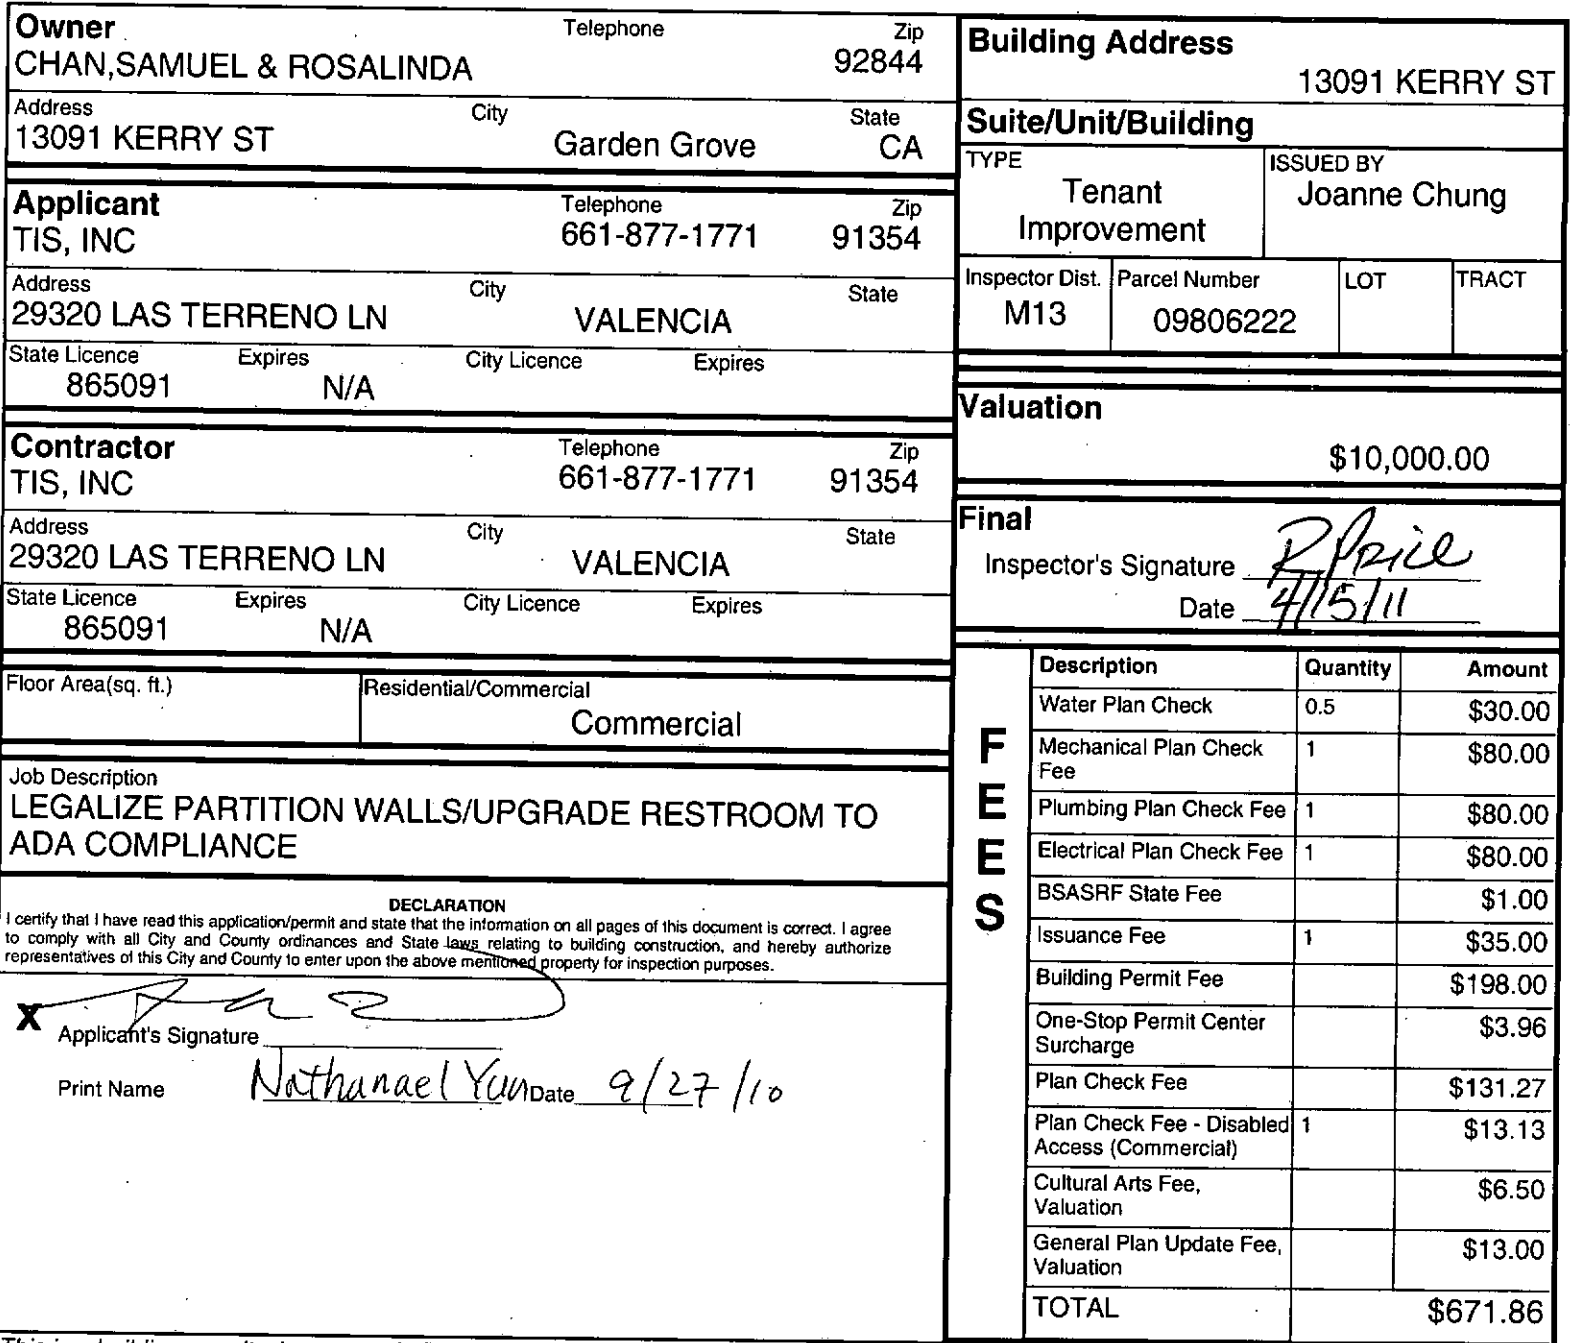 Owner Telephone Zip
CHAN,SAMUEL & ROSALINDA 92844
Address City State
13091 KERRY ST Garden Grove CA
Applicant Telephone Zip
TIS, INC 661-877-1771 91354
Address City State
29320 LAS TERRENO LN VALENCIA
State Licence Expires City Licence Expires
865091 N/A
Contractor Telephone Zip
TIS, INC 661-877-1771 91354
Address City State
29320 LAS TERRENO LN VALENCIA
State Licence Expires City Licence Expires
865091 N/A
Floor Area(sq. ft.) Residential/Commercial
Commercial
Job Description
LEGALIZE PARTITION WALLS/UPGRADE RESTROOM TO
ADA COMPLIANCE
DECLARATION
I certify that I have read this application/permit and state that the information on all pages of this document is correct. I agree
to comply with all City and County ordinances and State laws relating to building construction, and hereby authorize
representatives of this City and County to enter upon the above mentioned property for inspection purposes.
X Applicant's Signature
Print Name Nathanael Yun Date 9/27/10
Building Address
13091 KERRY ST
Suite/Unit/Building
TYPE ISSUED BY
Tenant Joanne Chung
Improvement
Inspector Dist. Parcel Number LOT TRACT
M13 09806222
Valuation
$10,000.00
Final
Inspector's Signature R Price
Date 4/15/11
FEES
Description Quantity Amount
Water Plan Check 0.5 $30.00
Mechanical Plan Check 1 $80.00
Fee
Plumbing Plan Check Fee 1 $80.00
Electrical Plan Check Fee 1 $80.00
BSASRF State Fee $1.00
Issuance Fee 1 $35.00
Building Permit Fee $198.00
One-Stop Permit Center $3.96
Surcharge
Plan Check Fee $131.27
Plan Check Fee - Disabled 1 $13.13
Access (Commercial)
Cultural Arts Fee, $6.50
Valuation
General Plan Update Fee, $13.00
Valuation
TOTAL $671.86